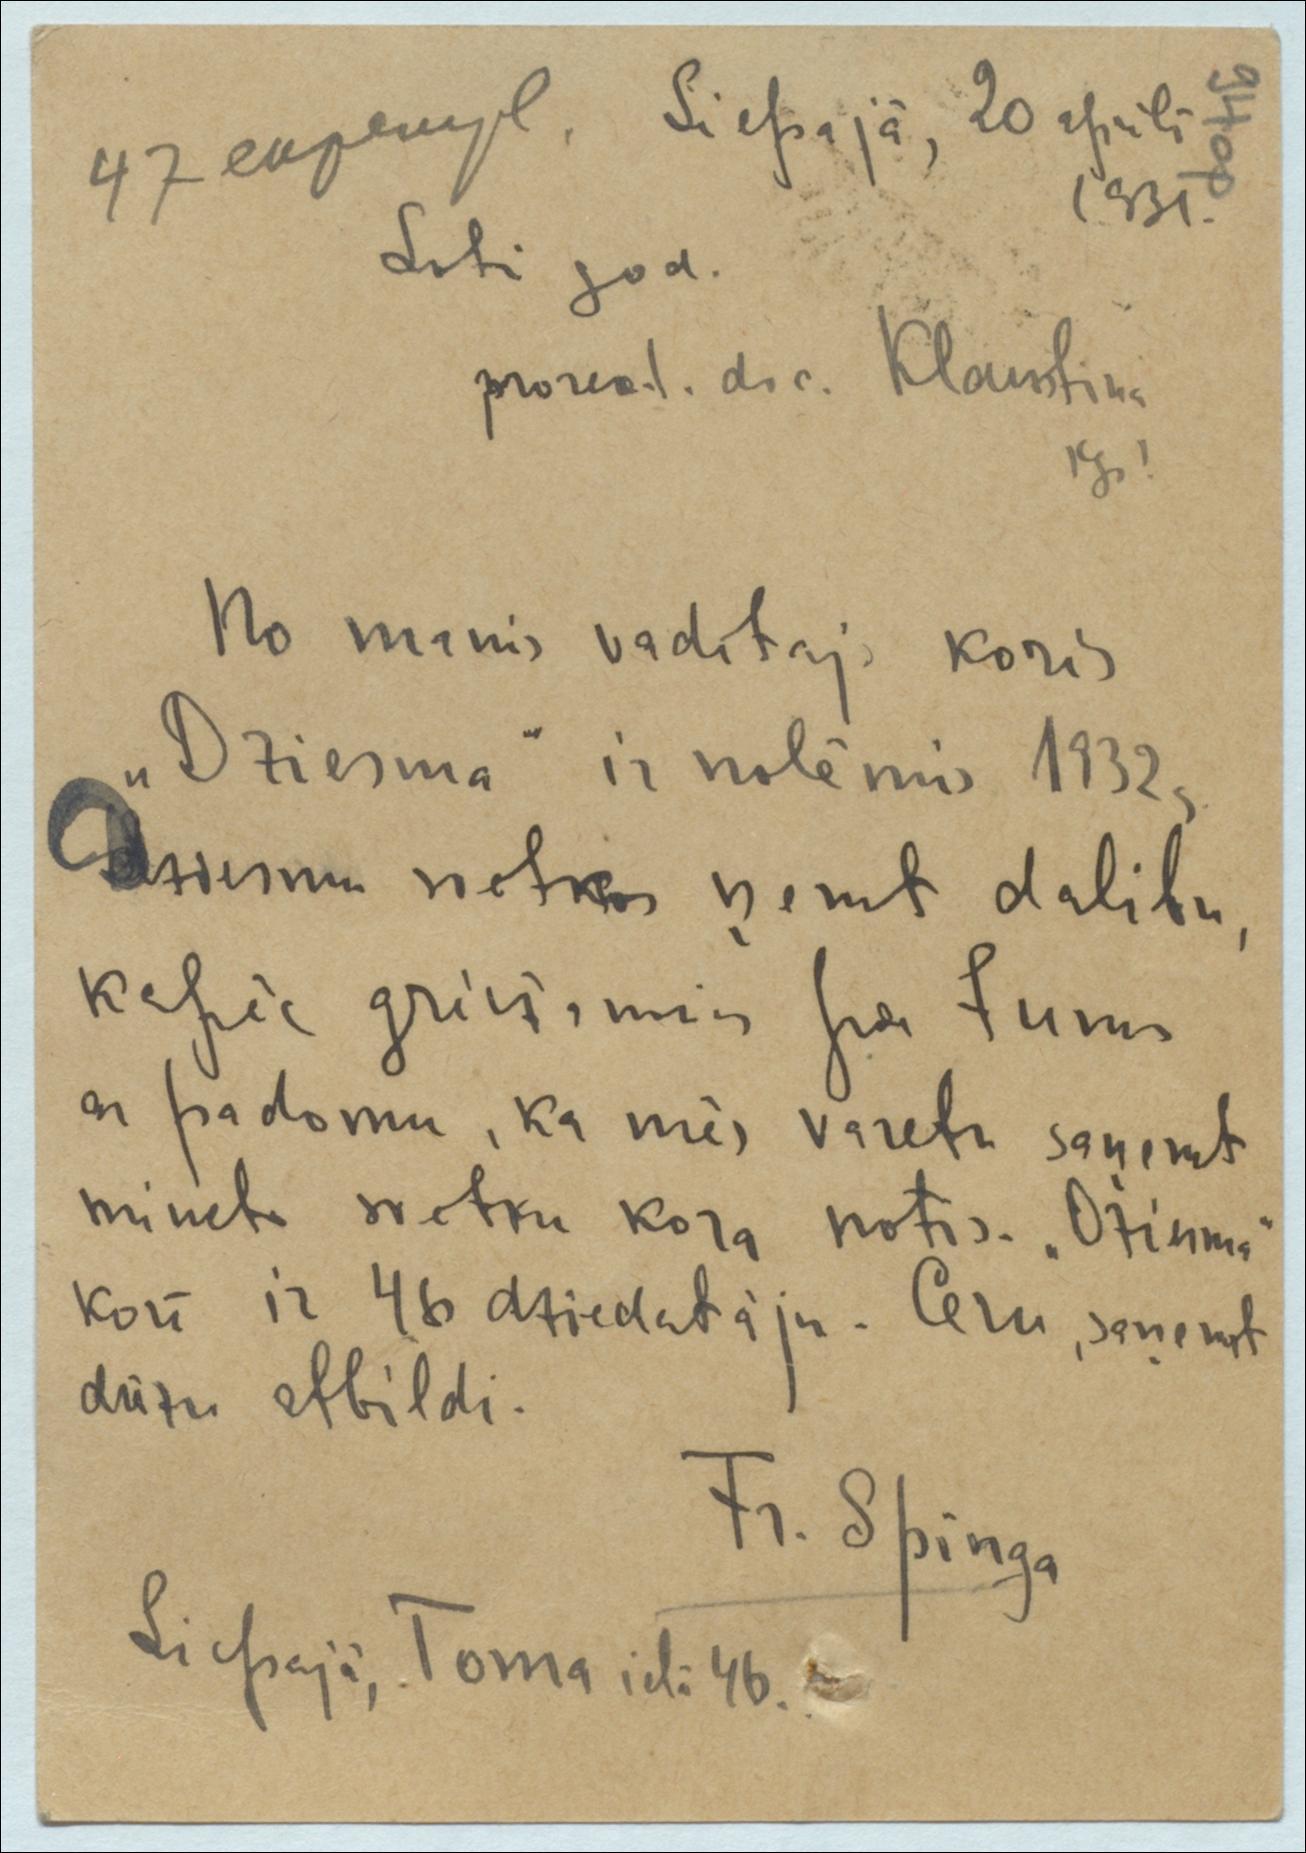 47
Liepajā, 20 aprilī
1931.
Ļoti god.
doc. Klaustiņa
kgs!
No manis vaditajs koris
„Dziesma" ir nolēmis 1932 g.
dziesmu svetkos ņemt dalibu,
kapēc griežamies pie Jums
ar padomu, ka mēs varetu saņemt
mineto svetku kora notis. „Dziesma"
korī ir 46 dziedatāju. Ceru, saņemt
drizu atbildi.
Fr. Spinga
Liepajā, Toma ielā 46.